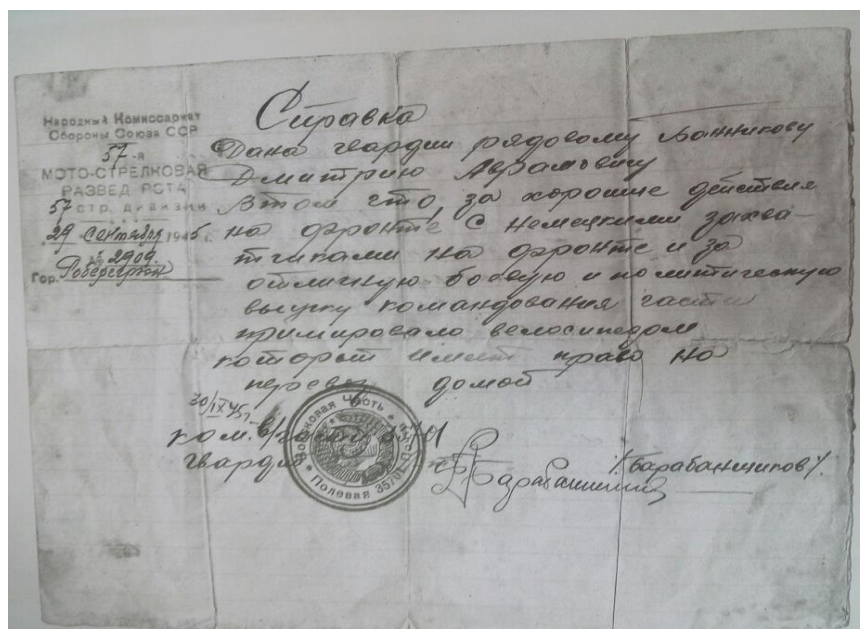 Народный Комиссариат
Обороны Союза ССР
57-я
МОТО-СТРЕЛКОВАЯ
РАЗВЕД РОТА
57 стр. дивизии
29 Сентября 1945 г.
№ 2909
Гор.
Справка
Дана гвардии рядовому Банникову
Дмитрию Аврамовичу
В том что, за хорошие действия
на фронте, с немецкими захва-
тчиками на фронте и за
отличную боевую и политическую
высучку командования части
примировало велосипедом
который имеет право на
перевоз домой
30/IX 45г
ком. в/части 35701
гвардии
/Барабанщиков/.
Войсковая Часть
Полевая 35701